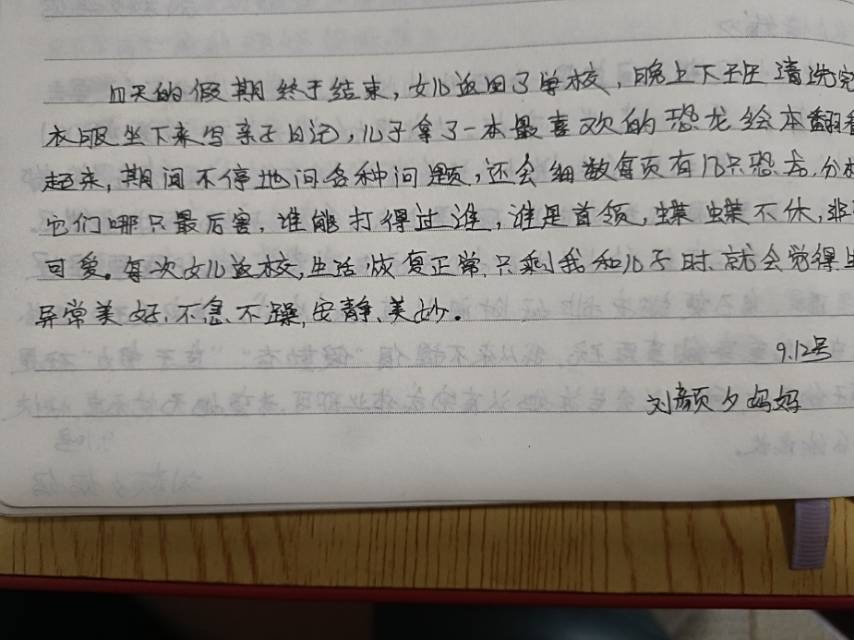 天的假期终于结束，女儿返回了学校，晚上下班清洗完
衣服坐下来写亲子日记，儿子拿了一本最喜欢的恐龙绘本翻看
起来，期间不停地问各种问题，还会细数每页有几只恐龙，分析
它们哪只最厉害，谁能打得过谁，谁是首领，蝶蝶不休，非
可爱。每次女儿返校，生活恢复正常，只剩我和儿子时，就会觉得
异常美好，不急、不躁，安静、美妙。
9.12号
刘颜夕妈妈